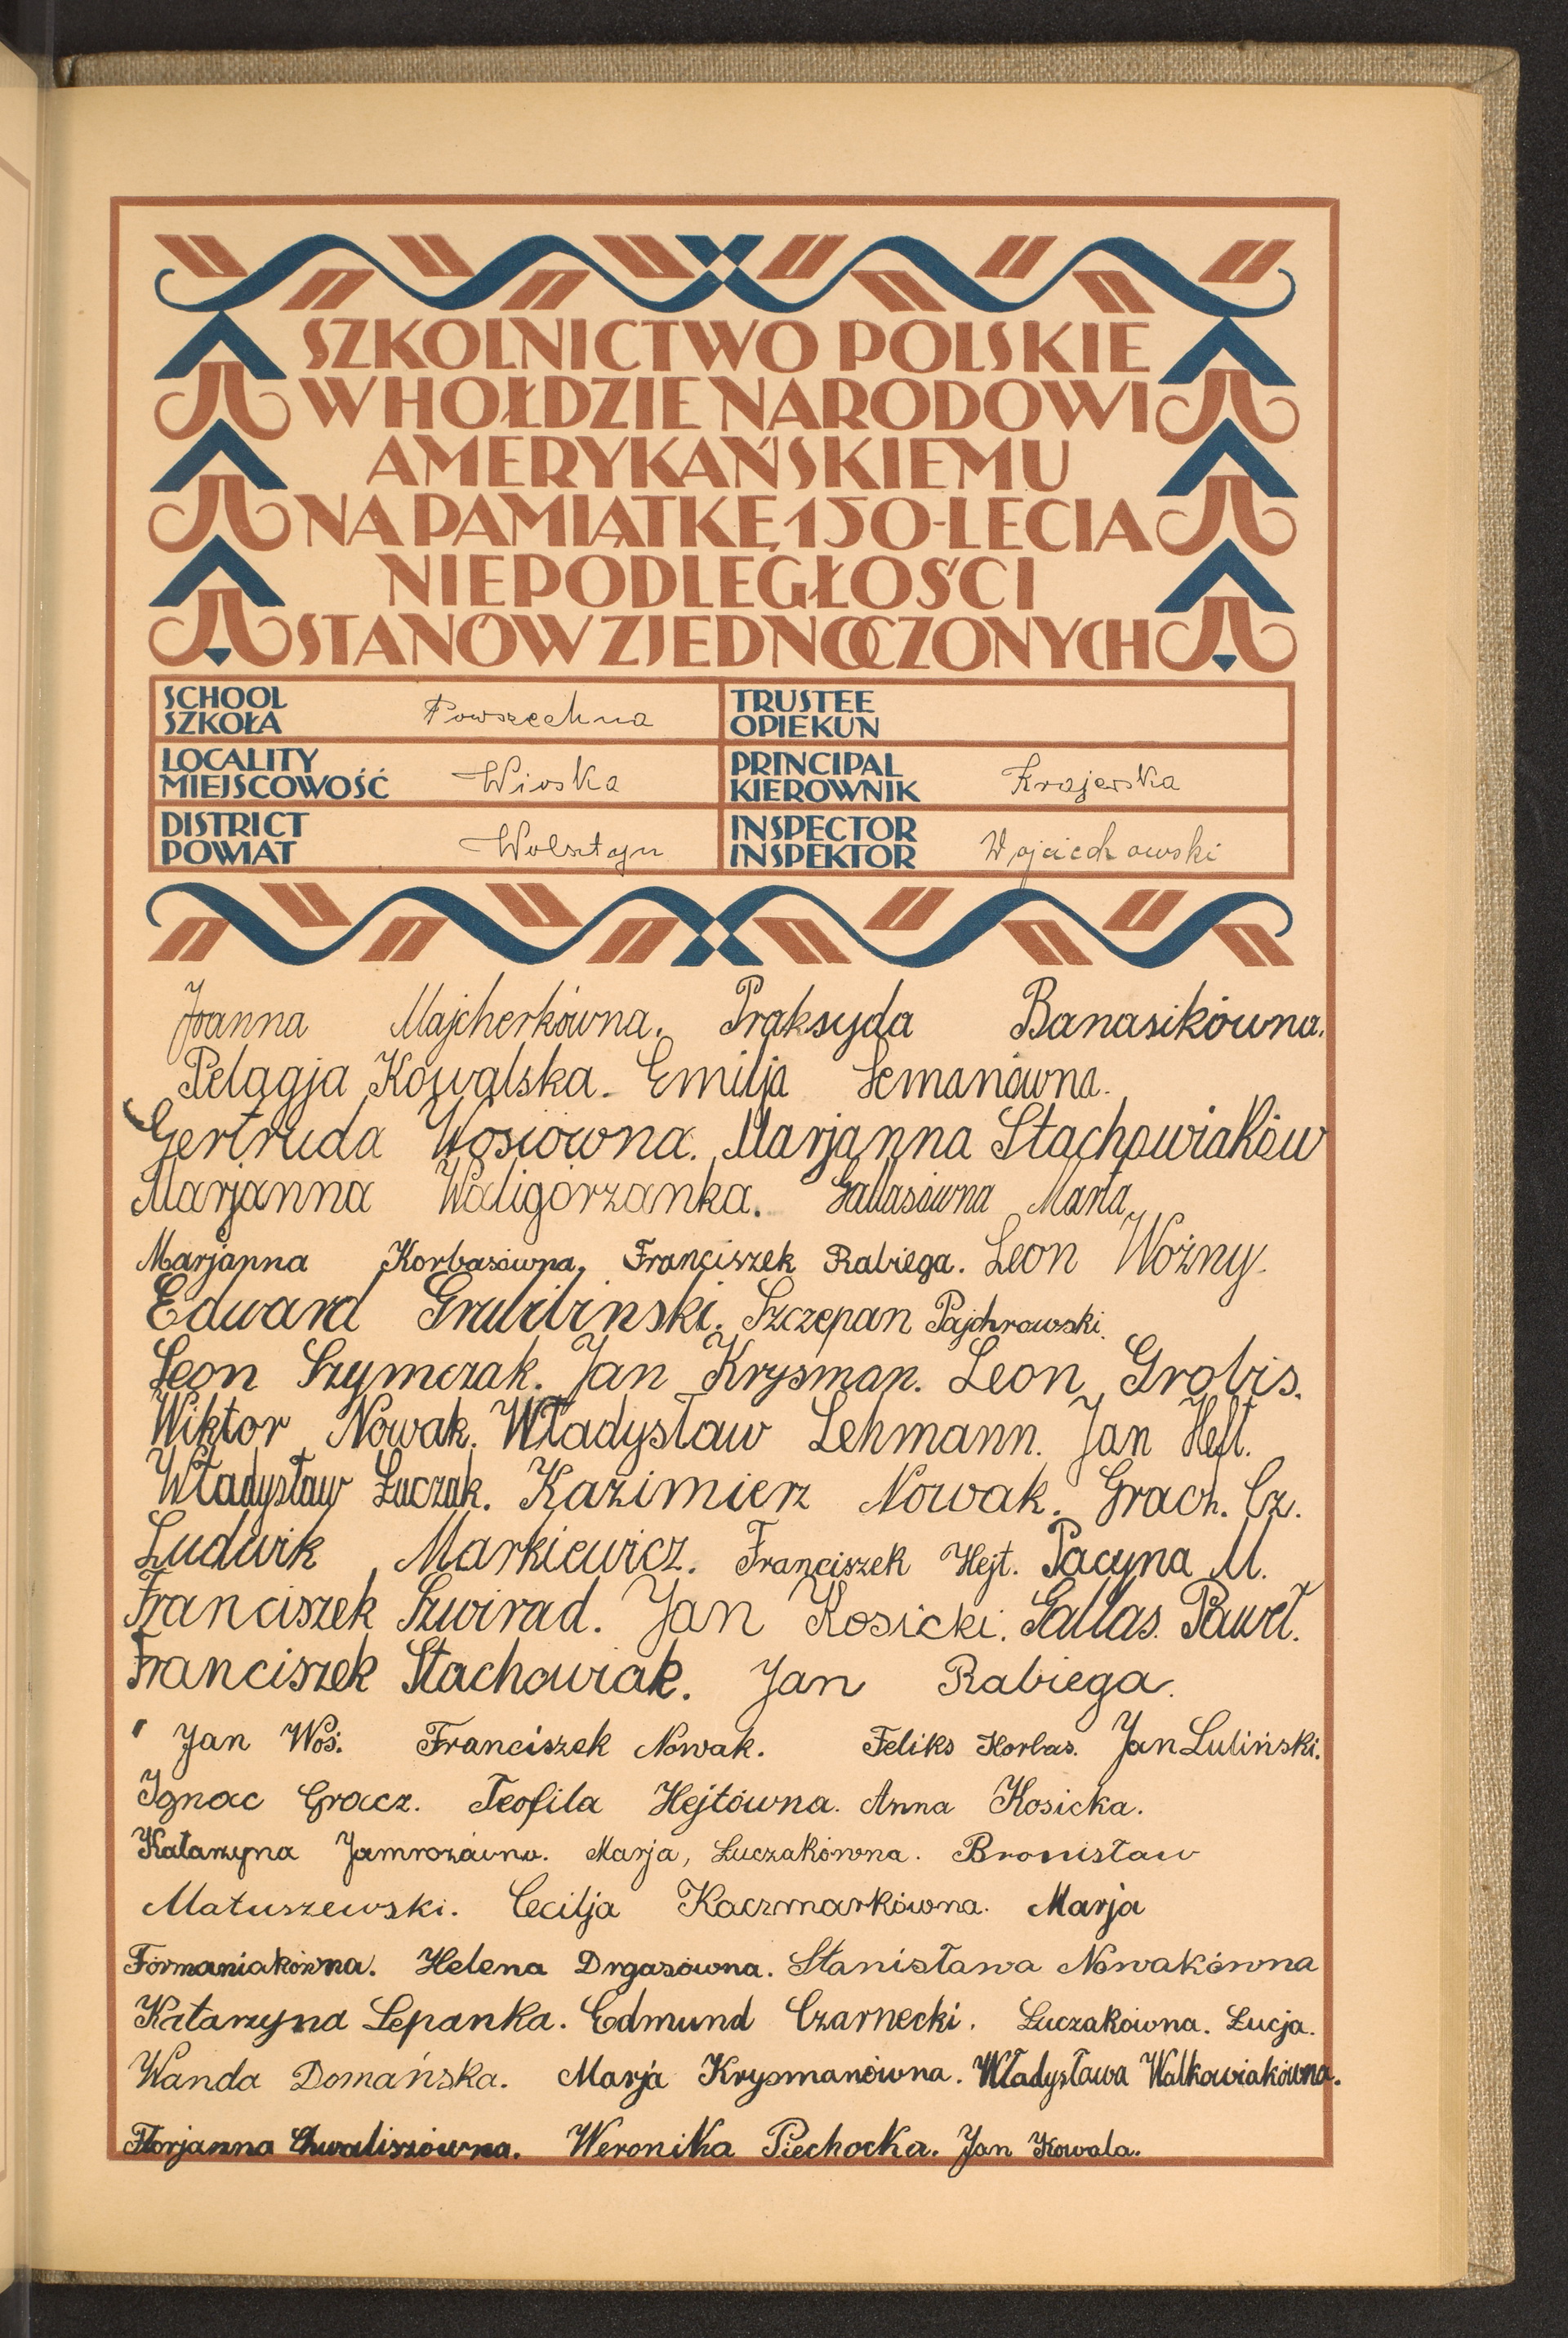 SZKOLNICTWO POLSKIE
W HOŁDZIE NARODOWI
AMERYKAŃSKIEMU
NA PAMIĄTKĘ 150-LECIA
NIEPODLEGŁOŚCI
STANÓW ZJEDNOCZONYCH
SCHOOL
SZKOŁA Powszechna
TRUSTEE
OPIEKUN
LOCALITY
MIEJSCOWOŚĆ Wioska
PRINCIPAL
KIEROWNIK Krajerska
DISTRICT
POWIAT Wolsztyn
INSPECTOR
INSPEKTOR Wojciechowski
Joanna Majcherkówna. Praksyda Banasikówna.
Pelagja Kowalska. Emilja Semanówna.
Gertruda Wosiówna. Marjanna Stachowiaków
Marjanna Waligórzanka. Gallasówna Marta.
Marjanna Korbasówna. Franciszek Rabiega. Leon Woźny.
Edward Szczepan Pajchrowski.
Leon Szymczak. Jan Krysman. Leon Grobis.
Wiktor Nowak. Władysław Lehmann. Jan Hejt.
Władysław Łuczak. Kazimierz Nowak. Grach. Cz.
Ludwik Markiewicz. Franciszek Hejt. Pacyna M.
Franciszek Szwirad. Jan Kosicki. Gallas. Paweł.
Franciszek Stachowiak. Jan Rabiega.
Jan Woś. Franciszek Nowak. Feliks Korbas. Jan Luliński.
Ignac Gracz. Teofila Hejtówna. Anna Kosicka.
Katarzyna Jamrozówna. Marja, Łuczakówna. Bronisław
Matuszewski. Cecilja Kaczmarkówna. Marja
Formaniakówna. Helena Drgasówna. Stanisława Nowakówna
Katarzyna Lepanka. Edmund Czarnecki. Łuczakówna. Łucja.
Wanda Domańska. Marja Krysmanówna. Władysława Walkowiakówna.
Florjanna Chwaliszówna. Weronika Piechocka. Jan Kowala.